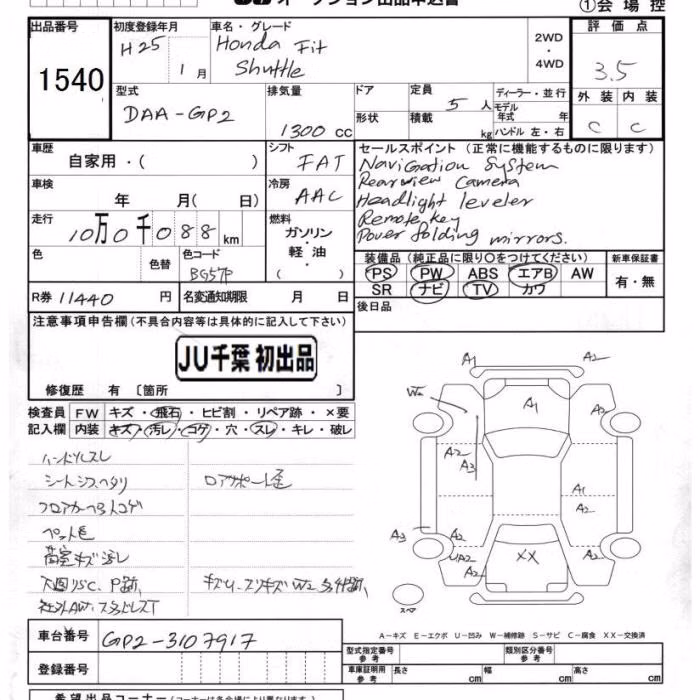 オークション出品申込書
①会場控
出品番号
1540
初度登録年月
H25 1月
車名・グレード
Honda Fit
Shuttle
2WD
・
4WD
評価点
3.5
型式
DAA-GP2
排気量
1300 cc
ドア
形状
定員
5人
積載
kg
ディーラー・並行
モデル
年式 年
ハンドル 左・右
外装 内装
C C
車歴
自家用・( )
シフト
FAT
セールスポイント (正常に機能するものに限ります)
Navigation System
Rearview Camera
Headlight leveler
Remote key
Power folding mirrors.
車検
年 月( 日)
冷房
AAC
走行
10万0千088km
燃料
ガソリン
・
軽油
( )
色
色替
色コード
BG57P
装備品 (純正品に限り○をつけてください)
PS PW ABS エアB AW
SR ナビ TV カワ
新車保証書
有・無
R券 11440 円
名変通知期限 月 日
後日品
注意事項申告欄(不具合内容等は具体的に記入して下さい)
JU千葉 初出品
修復歴 有 〔箇所 〕
検査員
記入欄
FW キズ・飛石・ヒビ割・リペア跡・×要
内装 キズ・汚レ・コゲ・穴・スレ・キレ・破レ
ハンドルスレ
シートシミヘタリ
ロアサポート歪
フロアカーペットコゲ
荷室キズ汚レ
社外AW・スタッドレスT
A1 A2
W2 A1 A2
A2
A3
A1
A2
A3 A2 A2
UA2 XX
スペア
A-キズ E-エクボ U-凹み W-補修跡 S-サビ C-腐食 XX-交換済
車台番号
GP2-3107917
登録番号
型式指定番号
参考
類別区分番号
参考
車庫証明用
参考
長さ cm 幅 cm 高さ cm
希望出品コーナー